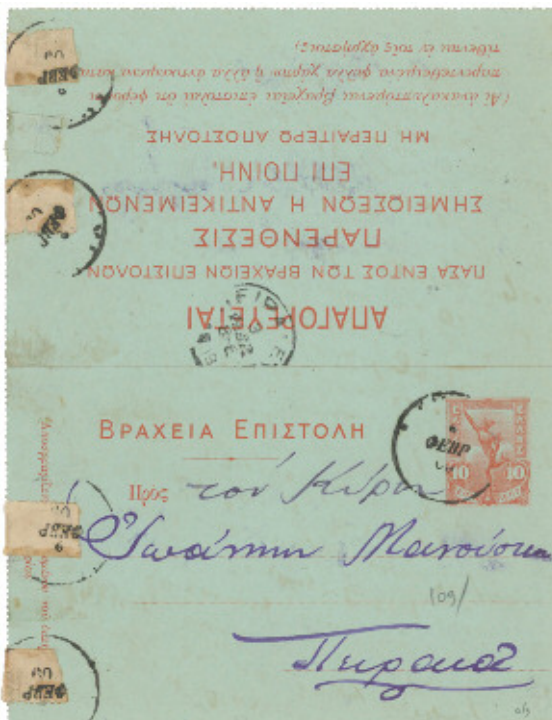 ΑΠΑΓΟΡΕΥΕΤΑΙ
ΠΑΣΑ ΕΝΤΟΣ ΤΩΝ ΒΡΑΧΕΙΩΝ ΕΠΙΣΤΟΛΩΝ
ΠΑΡΕΝΘΕΣΙΣ
ΣΗΜΕΙΩΣΕΩΝ Η ΑΝΤΙΚΕΙΜΕΝΩΝ
ΕΠΙ ΠΟΙΝΗ,
ΜΗ ΠΕΡΑΙΤΕΡΩ ΑΠΟΣΤΟΛΗΣ
(Αἱ ἀνακαλυπτόμεναι βραχεῖαι ἐπιστολαὶ ὅτι φέρουσι
παρεντεθειμένα φύλλα χάρτου ἢ ἄλλα ἀντικείμενα κατα
τίθενται ἐν τοῖς ἀχρήστοις)
ΒΡΑΧΕΙΑ ΕΠΙΣΤΟΛΗ
10 10
Πρὸς τὸν Κύριον
Ἰωάννην
Πειραιᾶ
109/
ΦΕΒΡ
ΦΕΒΡ
ΦΕΒΡ
ΦΕΒΡ
ΦΕΒΡ